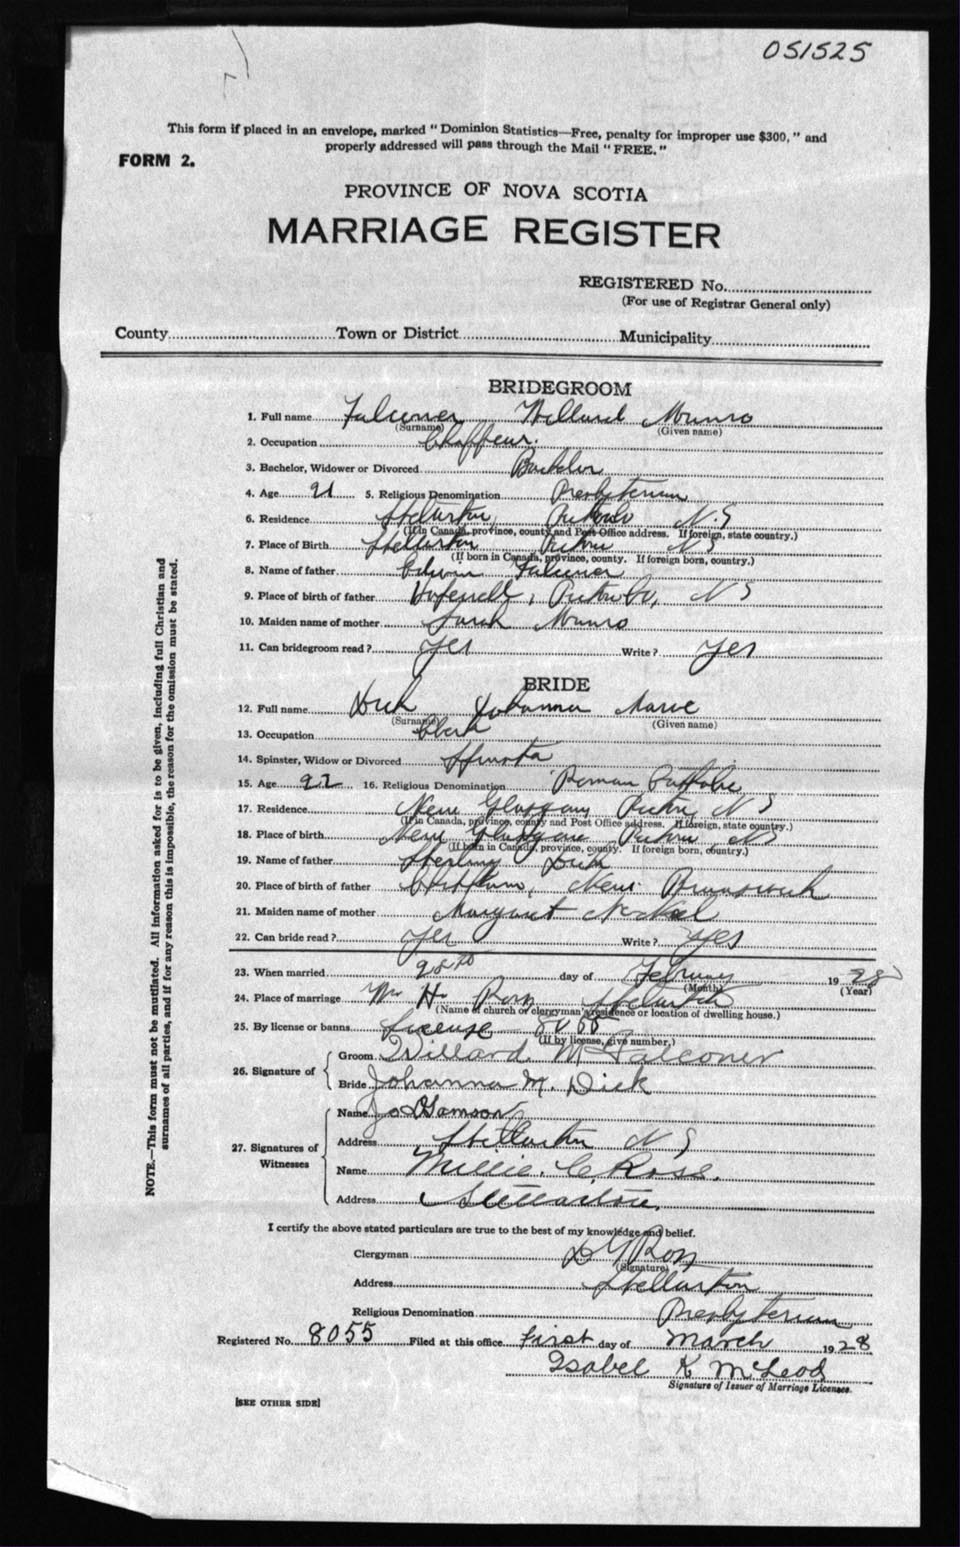 051525
This form if placed in an envelope, marked "Dominion Statistics—Free, penalty for improper use $300," and
properly addressed will pass through the Mail "FREE."
FORM 2.
PROVINCE OF NOVA SCOTIA
MARRIAGE REGISTER
REGISTERED No.
(For use of Registrar General only)
County Town or District Municipality
BRIDEGROOM
1. Full name Falconer Willard Munro
(Surname) (Given name)
2. Occupation Chaffeur.
3. Bachelor, Widower or Divorced Bachelor
4. Age 21 5. Religious Denomination Presbyterian
6. Residence Stellarton, Pictou Co N.S
(If in Canada, province, county and Post Office address. If foreign, state country.)
7. Place of Birth Stellarton Pictou NS
(If born in Canada, province, county. If foreign born, country.)
8. Name of father Edwin Falconer
9. Place of birth of father Hopewell, Pictou Co, N S
10. Maiden name of mother Sarah Munro
11. Can bridegroom read? yes Write? yes
BRIDE
12. Full name Dick Johanna Marie
(Surname) (Given name)
13. Occupation Clerk
14. Spinster, Widow or Divorced Spinster
15. Age 22 16. Religious Denomination Roman Catholic
17. Residence New Glasgow Pictou N S
(If in Canada, province, county and Post Office address. If foreign, state country.)
18. Place of birth New Glasgow Pictou NS
(If born in Canada, province, county. If foreign born, country.)
19. Name of father Sterling Dick
20. Place of birth of father Chatham, New Brunswick
21. Maiden name of mother Margaret
22. Can bride read? yes Write? yes
23. When married 28th day of February 1928
(Month) (Year)
24. Place of marriage H Ross Stellarton
(Name of church or clergyman's residence or location of dwelling house.)
25. By license or banns License 8055
(If by license, give number.)
26. Signature of Groom Willard M Falconer
Bride Johanna M. Dick
27. Signatures of Witnesses Name
Address Stellarton N S
Name Millie C. Ross.
Address Stellarton.
I certify the above stated particulars are true to the best of my knowledge and belief.
Clergyman Ross
(Signature)
Address Stellarton
Religious Denomination Presbyterian
Registered No. 8055 Filed at this office first day of March 1928
Isabel K McLeod
Signature of Issuer of Marriage Licenses.
[SEE OTHER SIDE]
NOTE.—This form must not be mutilated. All information asked for is to be given, including full Christian and
surnames of all parties, and if for any reason this is impossible, the reason for the omission must be stated.